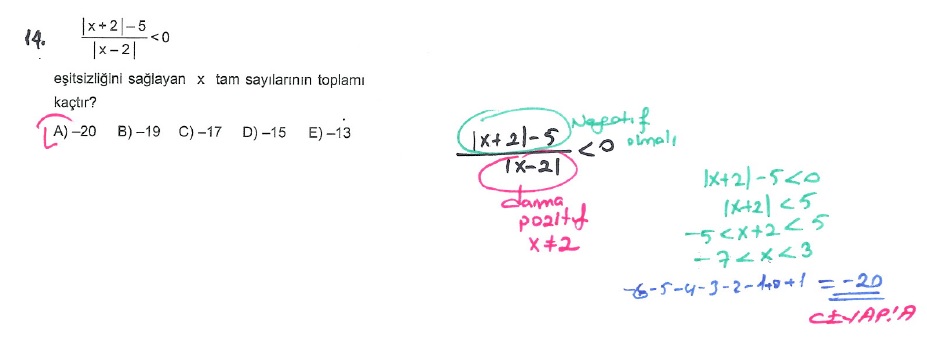 14. |x+2|-5 / |x-2| <0
eşitsizliğini sağlayan x tam sayılarının toplamı
kaçtır?
A) –20 B) –19 C) –17 D) –15 E) –13
|x+2|-5 / |x-2| <0
Negatif
olmalı
daima
pozitif
x≠2
|x+2|-5<0
|x+2|<5
-5<x+2<5
-7<x<3
-6-5-4-3-2-1+0+1 = -20
CEVAP:A